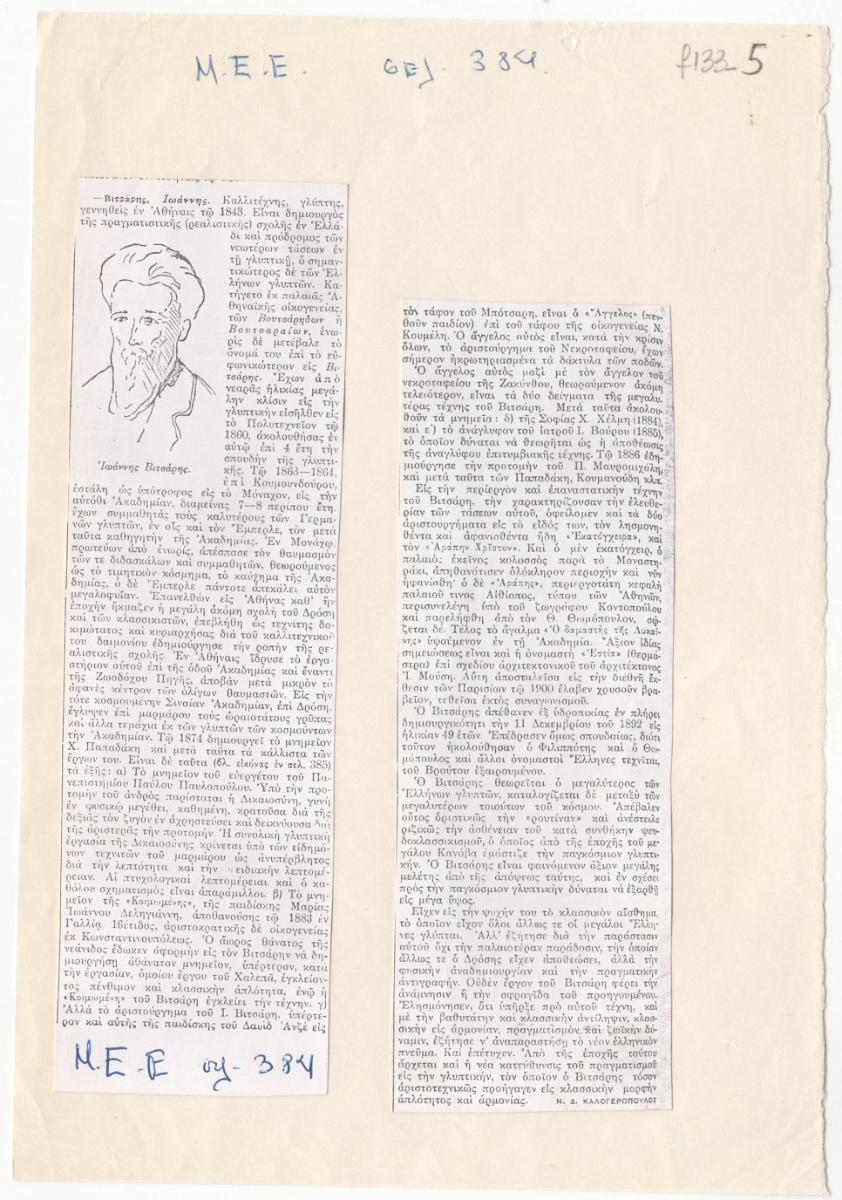 Μ.Ε.Ε. σελ. 384
f133-5
—Βιτσάρης, Ἰωάννης. Καλλιτέχνης, γλύπτης,
γεννηθεὶς ἐν Ἀθήναις τῷ 1843. Εἶναι δημιουργὸς
τῆς πραγματιστικῆς (ρεαλιστικῆς) σχολῆς ἐν Ἑλλά-
δι καὶ πρόδρομος τῶν
νεωτέρων τάσεων ἐν
τῇ γλυπτικῇ, ὁ σημαν-
τικώτερος δὲ τῶν Ἑλ-
λήνων γλυπτῶν. Κα-
τήγετο ἐκ παλαιᾶς Ἀ-
θηναϊκῆς οἰκογενείας,
τῶν Βουτσάρηδων ἢ
Βουτσαραίων, ἐνω-
ρὶς δὲ μετέβαλε τὸ
ὄνομά του ἐπὶ τὸ εὐ-
φωνικώτερον εἰς Βι-
τσάρης. Ἔχων ἀπὸ
νεαρᾶς ἡλικίας μεγά-
λην κλίσιν εἰς τὴν
γλυπτικὴν εἰσῆλθεν εἰς
τὸ Πολυτεχνεῖον τῷ
1860, ἀκολουθήσας ἐν
αὐτῷ ἐπὶ 4 ἔτη τὴν
σπουδὴν τῆς γλυπτι-
κῆς. Τῷ 1863—1864,
ἐπὶ Κουμουνδούρου,
Ἰωάννης Βιτσάρης.
ἐστάλη ὡς ὑπότροφος εἰς τὸ Μόναχον, εἰς τὴν
αὐτόθι Ἀκαδημίαν, διαμείνας 7—8 περίπου ἔτη,
ἔχων συμμαθητὰς τοὺς καλυτέρους τῶν Γερμα-
νῶν γλυπτῶν, ἐν οἷς καὶ τὸν Ἔμπερλε, τὸν μετὰ
ταῦτα καθηγητὴν τῆς Ἀκαδημίας. Ἐν Μονάχῳ
πρωτεύων ἀπὸ ἐνωρίς, ἀπέσπασε τὸν θαυμασμὸν
τῶν τε διδασκάλων καὶ συμμαθητῶν, θεωρούμενος
ὡς τὸ τιμητικὸν κόσμημα, τὸ καύχημα τῆς Ἀκα-
δημίας, ὁ δὲ Ἔμπερλε πάντοτε ἀπεκάλει αὐτὸν
μεγαλοφυΐαν. Ἐπανελθὼν εἰς Ἀθήνας καθ' ἣν
ἐποχὴν ἤκμαζεν ἡ μεγάλη ἀκόμη σχολὴ τοῦ Δρόση
καὶ τῶν κλασσικιστῶν, ἐπεβλήθη ὡς τεχνίτης δο-
κιμώτατος καὶ κυριαρχήσας διὰ τοῦ καλλιτεχνικοῦ
του δαιμονίου ἐδημιούργησε τὴν ροπὴν τῆς ρε-
αλιστικῆς σχολῆς. Ἐν Ἀθήναις ἵδρυσε τὸ ἐργα-
στήριον αὐτοῦ ἐπὶ τῆς ὁδοῦ Ἀκαδημίας καὶ ἔναντι
τῆς Ζωοδόχου Πηγῆς, ἀποβὰν μετὰ μικρὸν τὸ
ἀφανὲς κέντρον τῶν ὀλίγων θαυμαστῶν. Εἰς τὴν
τότε κοσμουμένην Σιναίαν Ἀκαδημίαν, ἐπὶ Δρόση,
ἔγλυψεν ἐπὶ μαρμάρου τοὺς ὡραιοτάτους γρῦπας
καὶ ἄλλα τεμάχια ἐκ τῶν γλυπτῶν τῶν κοσμούντων
τὴν Ἀκαδημίαν. Τῷ 1874 δημιουργεῖ τὸ μνημεῖον
Χ. Παπαδάκη καὶ μετὰ ταῦτα τὰ κάλλιστα τῶν
ἔργων του. Εἶναι δὲ ταῦτα (βλ. εἰκόνας ἐν σελ. 385)
τὰ ἑξῆς : α) Τὸ μνημεῖον τοῦ εὐεργέτου τοῦ Πα-
νεπιστημίου Παύλου Παυλοπούλου. Ὑπὸ τὴν προ-
τομὴν τοῦ ἀνδρὸς παρίσταται ἡ Δικαιοσύνη, γυνὴ
ἐν φυσικῷ μεγέθει, καθημένη, κρατοῦσα διὰ τῆς
δεξιᾶς τὸν ζυγὸν ἐν ἀχρηστεύσει καὶ δεικνύουσα διὰ
τῆς ἀριστερᾶς τὴν προτομήν. Ἡ συνολικὴ γλυπτικὴ
ἐργασία τῆς Δικαιοσύνης κρίνεται ὑπὸ τῶν εἰδημό-
νων τεχνιτῶν τοῦ μαρμάρου ὡς ἀνυπέρβλητος
διὰ τὴν λεπτότητα καὶ τὴν εἰδιακὴν λεπτομέ-
ρειαν. Αἱ πτυχολογικαὶ λεπτομέρειαι καὶ ὁ κα-
θόλου σχηματισμὸς εἶναι ἀπαράμιλλοι. β) Τὸ μνη-
μεῖον τῆς «Κοιμωμένης», τῆς παιδίσκης Μαρίας
Ἰωάννου Δεληγιάννη, ἀποθανούσης τῷ 1883 ἐν
Γαλλίᾳ 16έτιδος, ἀριστοκρατικῆς δὲ οἰκογενείας
ἐκ Κωνσταντινουπόλεως. Ὁ ἄωρος θάνατος τῆς
νεάνιδος ἔδωκεν ἀφορμὴν εἰς τὸν Βιτσάρην νὰ δη-
μιουργήσῃ ἀθάνατον μνημεῖον, ὑπέρτερον, κατὰ
τὴν ἐργασίαν, ὁμοίου ἔργου τοῦ Χαλεπᾶ, ἐγκλείον-
τος πένθιμον καὶ κλασσικὴν ἁπλότητα, ἐνῷ ἡ
«Κοιμωμένη» τοῦ Βιτσάρη ἐγκλείει τὴν τέχνην. γ)
Ἀλλὰ τὸ ἀριστούργημα τοῦ Ι. Βιτσάρη, ὑπέρτε-
ρον καὶ αὐτῆς τῆς παιδίσκης τοῦ Δαυὶδ Ἀνζὲ εἰς
Μ.Ε.Ε σελ- 384
τὸν τάφον τοῦ Μπότσαρη, εἶναι ὁ «Ἄγγελος» (πεν-
θοῦν παιδίον) ἐπὶ τοῦ τάφου τῆς οἰκογενείας Ν.
Κουμέλη. Ὁ ἄγγελος αὐτὸς εἶναι, κατὰ τὴν κρίσιν
ὅλων, τὸ ἀριστούργημα τοῦ Νεκροταφείου, ἔχων
σήμερον ἠκρωτηριασμένα τὰ δάκτυλα τῶν ποδῶν.
Ὁ ἄγγελος αὐτὸς μαζὶ μὲ τὸν ἄγγελον τοῦ
νεκροταφείου τῆς Ζακύνθου, θεωρούμενον ἀκόμη
τελειότερον, εἶναι τὰ δύο δείγματα τῆς μεγαλυ-
τέρας τέχνης τοῦ Βιτσάρη. Μετὰ ταῦτα ἀκολου-
θοῦν τὰ μνημεῖα : δ) τῆς Σοφίας Χ. Χέλμη (1884),
καὶ ε') τὸ ἀνάγλυφον τοῦ ἰατροῦ Ι. Βούρου (1885),
τὸ ὁποῖον δύναται νὰ θεωρῆται ὡς ἡ ἀποθέωσις
τῆς ἀναγλύφου ἐπιτυμβιακῆς τέχνης. Τῷ 1886 ἐδη-
μιούργησε τὴν προτομὴν τοῦ Π. Μαυρομιχάλη,
καὶ μετὰ ταῦτα τῶν Παπαδάκη, Κουμανούδη κλπ.
Εἰς τὴν περίεργον καὶ ἐπαναστατικὴν τέχνην
τοῦ Βιτσάρη, τὴν χαρακτηρίζουσαν τὴν ἐλευθε-
ρίαν τῶν τάσεων αὐτοῦ, ὀφείλομεν καὶ τὰ δύο
ἀριστουργήματα εἰς τὸ εἶδός των, τὸν λησμονη-
θέντα καὶ ἀφανισθέντα ἤδη «Ἑκατόγχειρα», καὶ
τὸν «Ἀράπην Χρῖστον». Καὶ ὁ μὲν ἑκατόγχειρ, ὁ
παλαιὸς ἐκεῖνος κολοσσὸς παρὰ τὸ Μοναστη-
ράκι, ἀπηθανάτισεν ὁλόκληρον περιοχὴν καὶ νῦν
ἠφανίσθη· ὁ δὲ «Ἀράπης», περιεργοτάτη κεφαλὴ
παλαιοῦ τινος Αἰθίοπος, τύπου τῶν Ἀθηνῶν,
περισυνελέγη ὑπὸ τοῦ ζωγράφου Κοντοπούλου
καὶ παρελήφθη ἀπὸ τὸν Θ. Θωμόπουλον, σώ-
ζεται δέ. Τέλος τὸ ἄγαλμα «Ὁ δαμαστὴς τῆς Λυκαί-
νης» ὑψούμενον ἐν τῇ Ἀκαδημίᾳ. Ἄξιον ἰδίας
σημειώσεως εἶναι καὶ ἡ ὀνομαστὴ «Ἑστία» (θερμά-
στρα) ἐπὶ σχεδίου ἀρχιτεκτονικοῦ τοῦ ἀρχιτέκτονος
Ἰ. Μούση. Αὕτη ἀποσταλεῖσα εἰς τὴν διεθνῆ ἔκ-
θεσιν τῶν Παρισίων τῷ 1900 ἔλαβεν χρυσοῦν βρα-
βεῖον, τεθεῖσα ἐκτὸς συναγωνισμοῦ.
Ὁ Βιτσάρης ἀπέθανεν ἐξ ὑδροπικίας ἐν πλήρει
δημιουργικότητι τὴν 11 Δεκεμβρίου τοῦ 1892 εἰς
ἡλικίαν 49 ἐτῶν. Ἐπέδρασεν ὅμως σπουδαίως, διότι
τοῦτον ἠκολούθησαν ὁ Φιλιππότης καὶ ὁ Θω-
μόπουλος καὶ ἄλλοι ὀνομαστοὶ Ἕλληνες τεχνῖται,
τοῦ Βρούτου ἐξαιρουμένου.
Ὁ Βιτσάρης θεωρεῖται ὁ μεγαλύτερος τῶν
Ἑλλήνων γλυπτῶν, καταλογίζεται δὲ μεταξὺ τῶν
μεγαλυτέρων τοιούτων τοῦ κόσμου. Ἀπέβαλεν
οὗτος ὁριστικῶς τὴν «ρουτίναν» καὶ ἀνέστειλε
ριζικῶς τὴν ἀσθένειαν τοῦ κατὰ συνθήκην ψευ-
δοκλασσικισμοῦ, ὁ ὁποῖος ἀπὸ τῆς ἐποχῆς τοῦ με-
γάλου Κανόβα ἐμάστιζε τὴν παγκόσμιον γλυπτι-
κήν. Ὁ Βιτσάρης εἶναι φαινόμενον ἄξιον μεγάλης
μελέτης ἀπὸ τῆς ἀπόψεως ταύτης, καὶ ἐν σχέσει
πρὸς τὴν παγκόσμιον γλυπτικὴν δύναται νὰ ἐξαρθῇ
εἰς μέγα ὕψος.
Εἶχεν εἰς τὴν ψυχήν του τὸ κλασσικὸν αἴσθημα,
τὸ ὁποῖον εἶχον ὅλοι ἄλλως τε οἱ μεγάλοι Ἕλλη-
νες γλύπται. Ἀλλ' ἐζήτησε διὰ τὴν παράστασι
αὐτοῦ ὄχι τὴν παλαιοτέραν παράδοσιν, τὴν ὁποίαν
ἄλλως τε ὁ Δρόσης εἶχεν ἀποθεώσει, ἀλλὰ τὴν
φυσικὴν ἀναδημιουργίαν καὶ τὴν πραγματικὴν
ἀντιγραφήν. Οὐδὲν ἔργον τοῦ Βιτσάρη φέρει τὴν
ἀνάμνησιν ἢ τὴν σφραγῖδα τοῦ προηγουμένου.
Ἐλησμόνησεν, ὅτι ὑπῆρξε πρὸ αὐτοῦ τέχνη, καὶ
μὲ τὴν βαθυτάτην καὶ κλασσικὴν ἀντίληψιν, κλασ-
σικὴν εἰς ἁρμονίαν, πραγματισμὸν καὶ ζωϊκὴν δύ-
ναμιν, ἐζήτησε ν' ἀναπαραστήσῃ τὸ νέον ἑλληνικὸν
πνεῦμα. Καὶ ἐπέτυχεν. Ἀπὸ τῆς ἐποχῆς τούτου
ἄρχεται καὶ ἡ νέα κατεύθυνσις τοῦ πραγματισμοῦ
εἰς τὴν γλυπτικήν, τὸν ὁποῖον ὁ Βιτσάρης τόσον
ἀριστοτεχνικῶς προήγαγεν εἰς κλασσικὴν μορφὴν
ἁπλότητος καὶ ἁρμονίας. Ν. Δ. ΚΑΛΟΓΕΡΟΠΟΥΛΟΣ